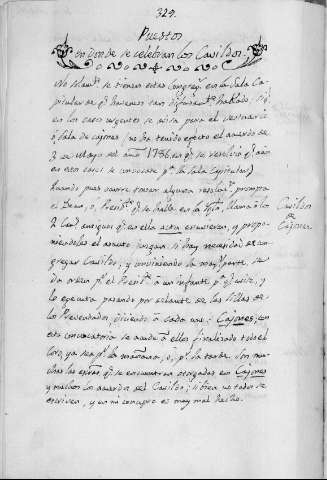 329.
Puestos
en donde se celebran los Cavildos.
No solam.te se tienen estas Congreg.s en la Sala Ca-
pitular de q.e havemos tan difusam.te hablado. Si,
en los casos urgentes se avisa para el vestuario
ò Sala de cajones, no ha tenido efecto el acuerdo de
2 de Mayo del año 1736. en q.e se resolviò q.e aùn
en esos casos se convocase p.a la Sala Capitular)
quando pues ocurre tomar alguna resoluc.n prompta
el Dean, ò, Presid.te q.e se halla en la Ygl.a, llama à los
2 Can.s antiguos q.e en ella
y propo-
niendoles el asunto juzgan si hay necesidad de con-
gregar Cavildo, y conviniendo la may.r parte, se
da orden p.r el Presid.te a un infante p.a q.e avise, y
lo executa pasando por delante de las Sillas de
los Prevendados, diciendo à cada uno: Cajones; con
esta convocatoria se acude à ellos finalizado todo el
Coro, ya sea p.r la mañana, ò, p.r la tarde. Son mu-
chas las q.e se encuentran otorgadas en Cajones
y muchos los acuerdos del Cavildo; si bien no todos se
escriven, y en mi concepto es muy mal hecho.
Cavildos
de
Cajones